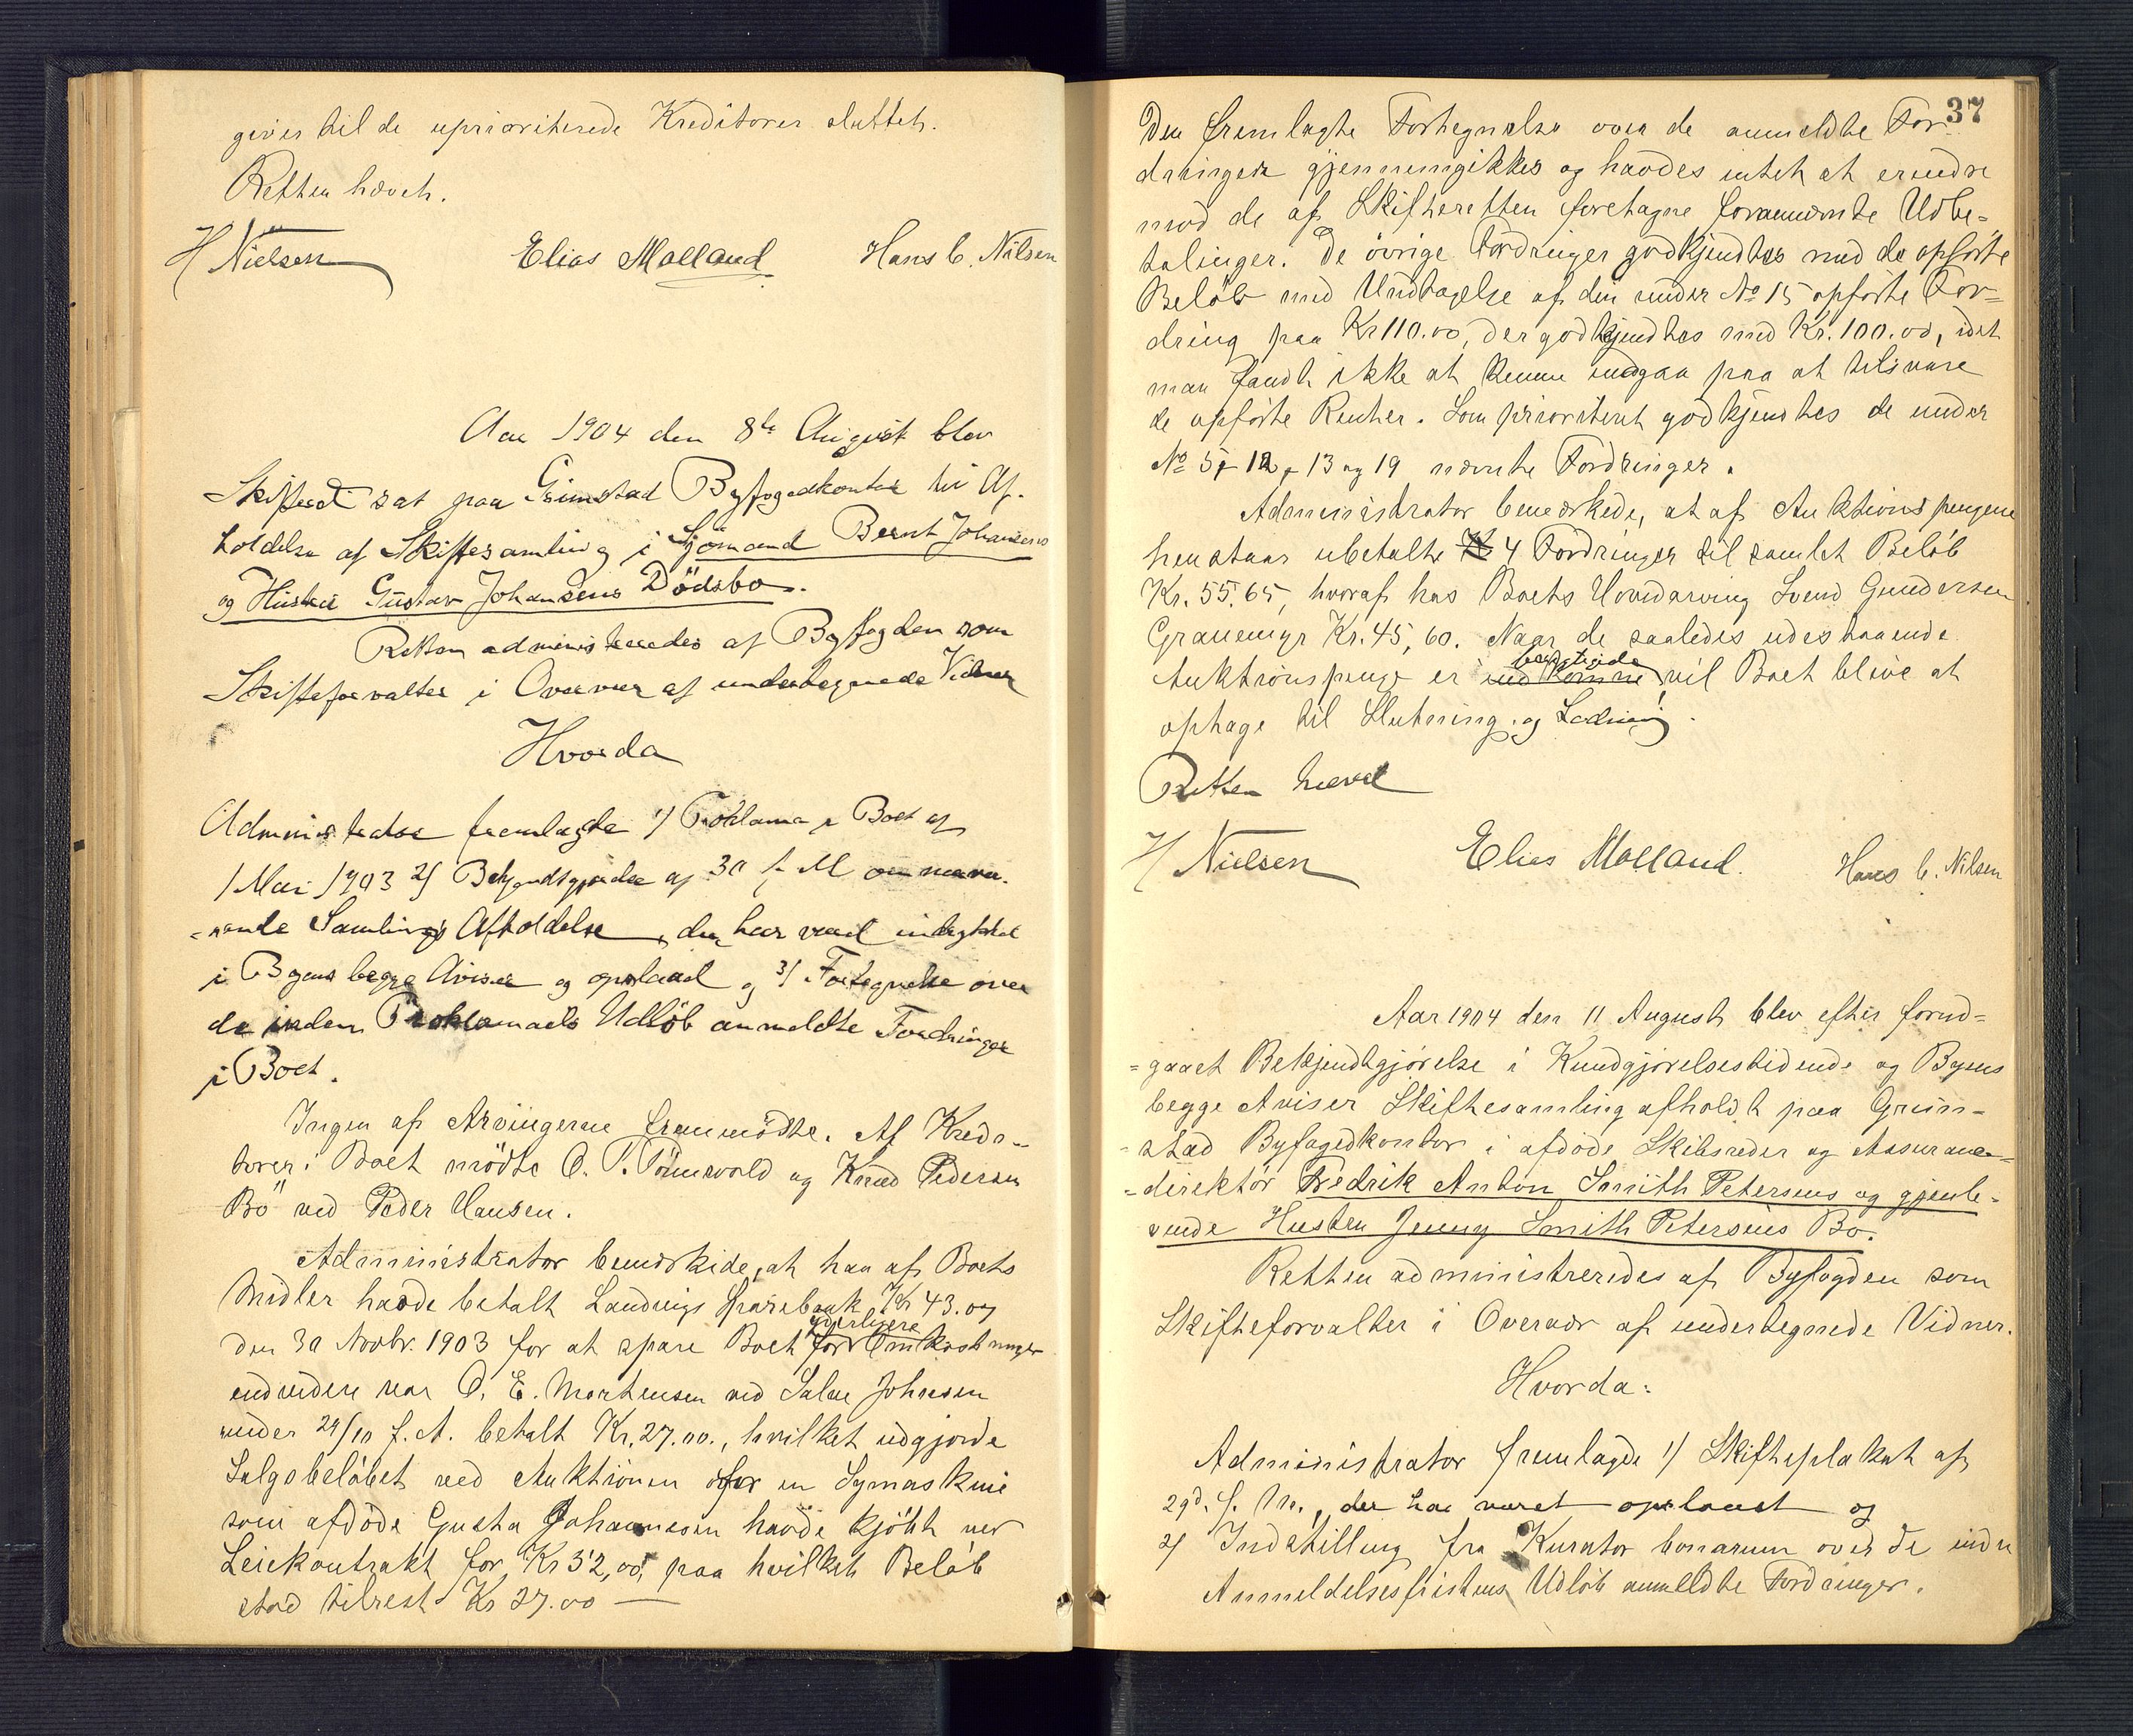 gives til de uprioriterede Kreditorer sluttet.
Retten hævet.
H Nielsen Elias Molland Hans C. Nilsen
Aar 1904 den 8de August blev
Skifteret sat paa Grimstad Byfogedkontor til Af-
holdelse af Skiftesamling i Sjømand Bernt Johansens
og Hustru Gustav Johansens Dødsbo.
Retten administreredes af Byfogden som
Skifteforvalter i Overvær af undertegnede Vidner
Hvorda
Administrator fremlagde 1/ Proklama i Boet af
1 Mai 1903 2/ Bekjendtgjørelse af 30 f. M om nærvæ-
-rende Samlings Afholdelse, der har været indrykket
i Byens begge Aviser og opslaaet og 3/ Fortegnelse over
de inden Proklamaets Udløb anmeldte Fordringer
i Boet.
Ingen af Arvingerne fremmødte. Af Kredi-
torer i Boet mødte O. T. Tønnevold og Knud Pedersen
Bø ved Peder Hansen.
Administrator bemærkede, at han af Boets
Midler havde betalt Landvigs Sparebank Kr 43.07
den 30 Novbr. 1903 for at spare Boet for yderligere Omkostninger
endvidere var O. E. Mortensen ved Salve Johnsen
under 24/10 f. A. betalt Kr. 27.00., hvilket udgjorde
Salgsbeløbet ved Auktionen over en Symaskine
som afdøde Gusta Johannesen havde kjøbt ved
Leiekontrakt for Kr 52,00, paa hvilket Beløb
stod tilrest Kr 27.00 —
37
Den fremlagte Fortegnelse over de anmeldte For
dringer gjennemgikkes og havdes intet at erindre
mod de af Skifteretten foretagne forannævnte Udbe-
talinger. De øvrige Fordringer godkjendtes med de opførte
Beløb med Undtagelse af den under No 15 opførte For-
dring paa Kr 110.00, der godkjendtes med Kr. 100.00, idet
man fandt ikke at kunne indgaa paa at tilsvare
de opførte Renter. Som prioriteret godkjendtes de under
No 5, 12, 13 og 19 nævnte Fordringer.
Administrator bemærkede, at af Auktionspengene
henstaar ubetalte 4 Fordringer til samlet Beløb
Kr. 55.65, hvoraf hos Boets Hovedarving Svend Gundersen
Grauemyr Kr. 45,60. Naar de saaledes udestaaende
Auktionspenge er indkomne vil Boet blive at
optage til Slutning og Lodning.
Retten hævet
H Nielsen Elias Molland. Hans C. Nilsen
Aar 1904 den 11 August blev efter forud-
=gaaet Bekjendtgjørelse i Kundgjørelsestidende og Byens
begge Aviser Skiftesamling afholdt paa Grim-
-stad Byfogedkontor i afdøde Skibsreder og Assurance-
=direktør Fredrik Anton Smith Petersens og gjenle-
vende Hustru Jenny Smith Petersens Bo.
Retten administreredes af Byfogden som
Skifteforvalter i Overvær af undertegnede Vidner.
Hvorda:
Administrator fremlagde 1/ Skifteplakat af
29d. f. M., der har været opslaaet og
2/ Indstilling fra Kurator bonorum over de inden
Anmeldelsesfristens Udløb anmeldte Fordringer.